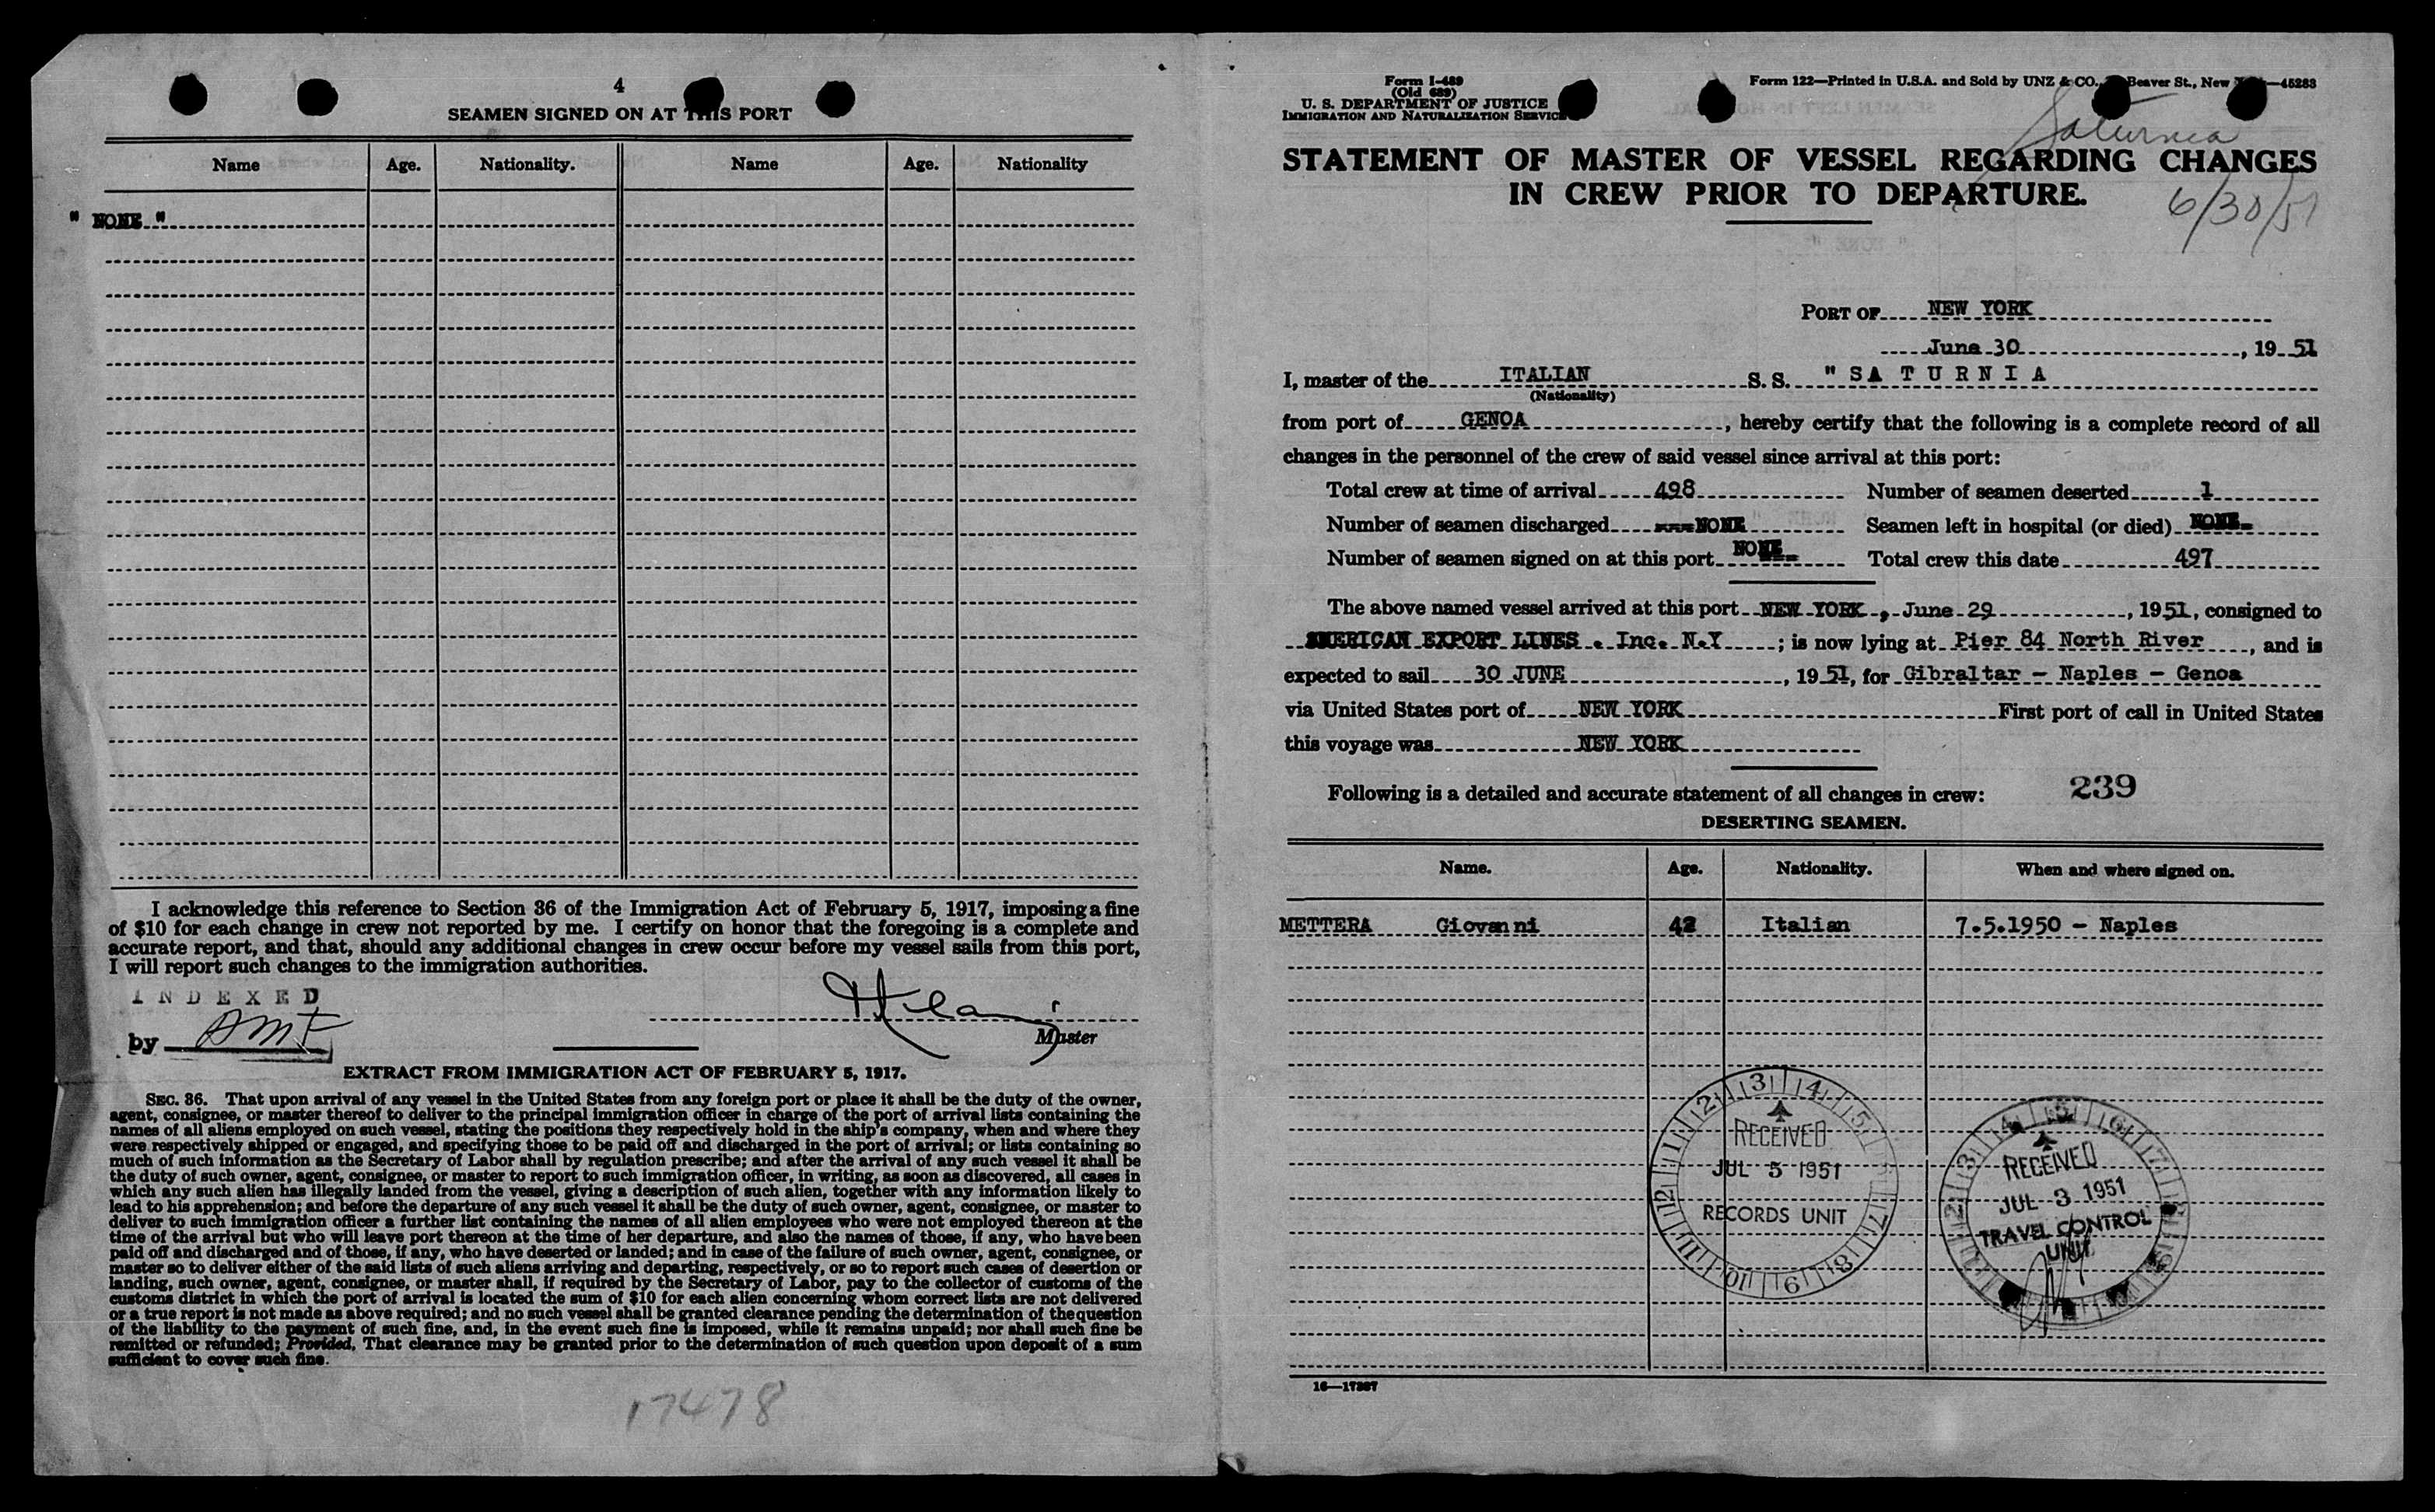 4
SEAMEN SIGNED ON AT THIS PORT
Name Age. Nationality. Name Age. Nationality
" NONE "
I acknowledge this reference to Section 36 of the Immigration Act of February 5, 1917, imposing a fine
of $10 for each change in crew not reported by me. I certify on honor that the foregoing is a complete and
accurate report, and that, should any additional changes in crew occur before my vessel sails from this port,
I will report such changes to the immigration authorities.
INDEXED
by
Master
EXTRACT FROM IMMIGRATION ACT OF FEBRUARY 5, 1917.
SEC. 36. That upon arrival of any vessel in the United States from any foreign port or place it shall be the duty of the owner,
agent, consignee, or master thereof to deliver to the principal immigration officer in charge of the port of arrival lists containing the
names of all aliens employed on such vessel, stating the positions they respectively hold in the ship's company, when and where they
were respectively shipped or engaged, and specifying those to be paid off and discharged in the port of arrival; or lists containing so
much of such information as the Secretary of Labor shall by regulation prescribe; and after the arrival of any such vessel it shall be
the duty of such owner, agent, consignee, or master to report to such immigration officer, in writing, as soon as discovered, all cases in
which any such alien has illegally landed from the vessel, giving a description of such alien, together with any information likely to
lead to his apprehension; and before the departure of any such vessel it shall be the duty of such owner, agent, consignee, or master to
deliver to such immigration officer a further list containing the names of all alien employees who were not employed thereon at the
time of the arrival but who will leave port thereon at the time of her departure, and also the names of those, if any, who have been
paid off and discharged and of those, if any, who have deserted or landed; and in case of the failure of such owner, agent, consignee, or
master so to deliver either of the said lists of such aliens arriving and departing, respectively, or so to report such cases of desertion or
landing, such owner, agent, consignee, or master shall, if required by the Secretary of Labor, pay to the collector of customs of the
customs district in which the port of arrival is located the sum of $10 for each alien concerning whom correct lists are not delivered
or a true report is not made as above required; and no such vessel shall be granted clearance pending the determination of the question
of the liability to the payment of such fine, and, in the event such fine is imposed, while it remains unpaid; nor shall such fine be
remitted or refunded; Provided, That clearance may be granted prior to the determination of such question upon deposit of a sum
sufficient to cover such fine.
17478
Form I-489
(Old 689)
U. S. DEPARTMENT OF JUSTICE
IMMIGRATION AND NATURALIZATION SERVICE
Form 122—Printed in U.S.A. and Sold by UNZ & CO., Beaver St., New —45283
Saturnia
STATEMENT OF MASTER OF VESSEL REGARDING CHANGES
IN CREW PRIOR TO DEPARTURE.
6/30/51
PORT OF NEW YORK
June 30, 1951
I, master of the ITALIAN S. S. "SATURNIA
(Nationality)
from port of GENOA, hereby certify that the following is a complete record of all
changes in the personnel of the crew of said vessel since arrival at this port:
Total crew at time of arrival 498 Number of seamen deserted 1
Number of seamen discharged NONE Seamen left in hospital (or died) NONE
Number of seamen signed on at this port NONE Total crew this date 497
The above named vessel arrived at this port NEW YORK, June 29, 1951, consigned to
AMERICAN EXPORT LINES . Inc. N.Y ; is now lying at Pier 84 North River, and is
expected to sail 30 JUNE, 1951, for Gibraltar - Naples - Genoa
via United States port of NEW YORK First port of call in United States
this voyage was NEW YORK
Following is a detailed and accurate statement of all changes in crew: 239
DESERTING SEAMEN.
Name. Age. Nationality. When and where signed on.
METTERA Giovanni 42 Italian 7.5.1950 - Naples
RECEIVED
JUL 5 1951
RECORDS UNIT
RECEIVED
JUL 3 1951
TRAVEL CONTROL
UNIT
16—17367